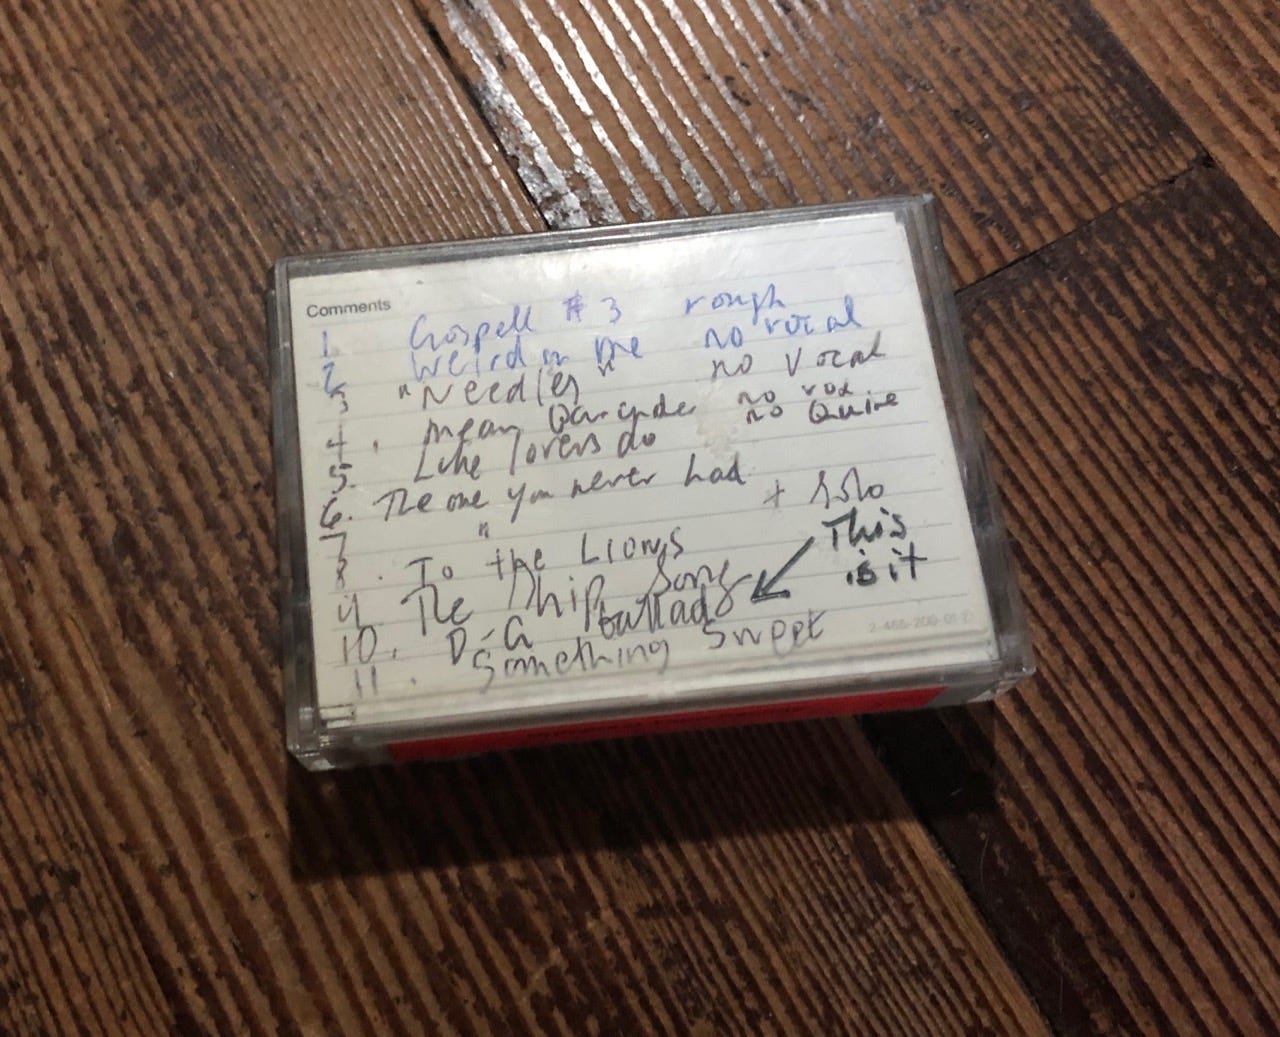 Comments
1. Gospell # 3 rough
2 Weird on me no vocal
3 "Needles" no vocal
4. mean no vox
5. Like lovers do no Quine
6. The one you never had
7 " + solo
8. To the Lions This is it
9. The Ship Song
10. D-G ballad
11. Something Sweet
2-466-200-01